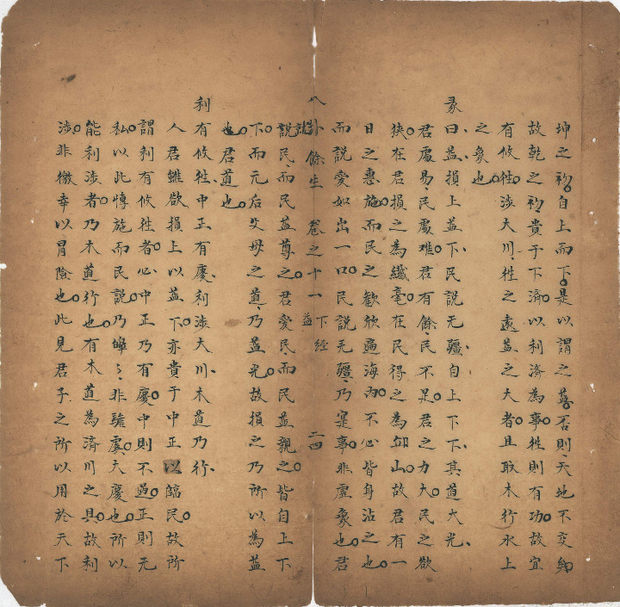 坤之初自上而下是以謂之益否則天地不交
故乾之初貴于下濟以利濟為事往則有功故宜
有攸往涉大川往之遠益之大者且取木行水上
之象也
彖曰益損上益下民說无疆自上下下其道大光
君處易民處难君有餘民不足君之力大民之欲
狹在君損之為纖毫在民得之為邱山故君有一
日之惠施而民之歡欣遍海內不必皆身沾之也
而說愛如出一口民說无疆乃寔事非虛象也君
八卦餘生 卷之十一 下經 益 二四
說民而民益尊之君愛民而民益親之皆自上下
下而元后父母之道乃益光故損之乃所以為益
也君道也
利有攸往中正有慶利涉大川木道乃行
人君雖欲損上以益下亦貴于中正以臨民故所
謂利有攸往者心中正乃有慶中則不過正則无
私以此慎施而民說乃皞〻非驩虞大慶也所以
能利涉者乃木道行也有木道為濟川之具故利
涉非徼幸以冒險也此見君子之所以用於天下